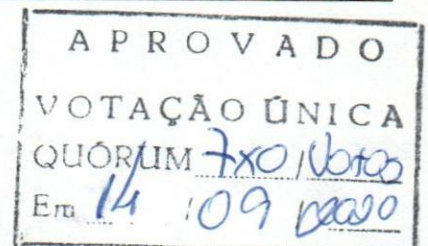 APROVADO
VOTAÇÃO ÚNICA
QUÓRUM 7x0 / Votos
Em 14 / 09 / 2020